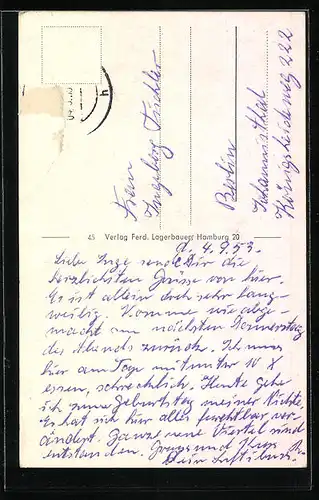 Frau
Ingeborg Tischler
Berlin
Johannisthal
Königsheideweg 222
45 Verlag Ferd. Lagerbauer, Hamburg 20
d. 4.9.53.
Liebe Inge sende Dir die
herzlichsten Grüsse von hier.
Es ist allein doch sehr lang-
weilig. Komme wie abge-
macht am nächsten Donnerstag
des Abends zurück. Ich muss
hier am Tage mitunter 10 X
essen, schrecklich. Heute gehe
ich zum Geburtstag meiner Nichte.
Es hat sich hier alles furchtbar ver-
ändert. Ganze neue Viertel sind
entstanden. Gruss und Kuss
Dein